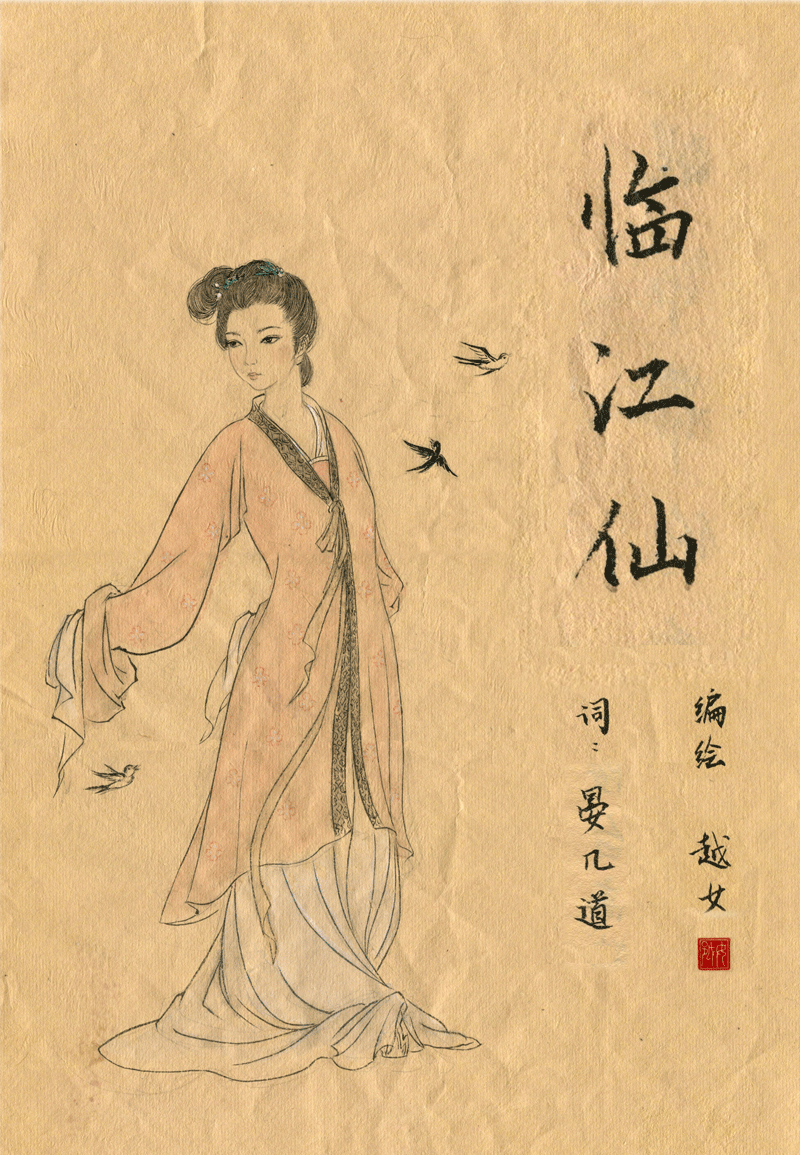 临江仙
编绘 越女
词：晏几道